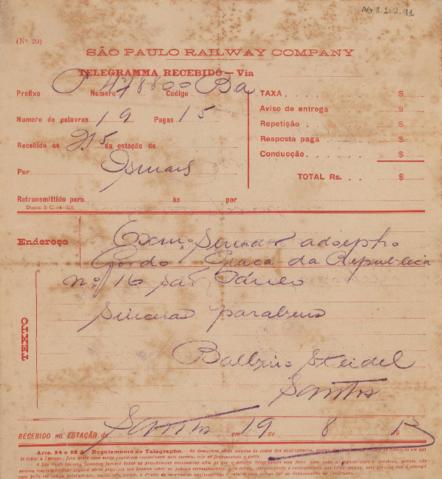 AG 1.2.2.11
(Nº 20)
SÃO PAULO RAILWAY COMPANY
TELEGRAMMA RECEBIDO — Via
Prefixo P Numero 478800 Codigo Ba
Numero de palavras 19 Pagas 15
Recebido ás 215 da estação de
Por
Retransmittido para ás por
TAXA $
Aviso de entrega $
Repetição $
Resposta paga $
Conducção $
TOTAL Rs. $
Endereço Exmo Senador Adolpho
Gordo Praça da Republica
nº 16 São Paulo
TEXTO
Sinceros parabens
Balbino Steidel
Santos
RECEBIDO NA ESTAÇÃO DE Santos em 19 8
Arts. 54 e 55 § Regulamento do Telegrapho.